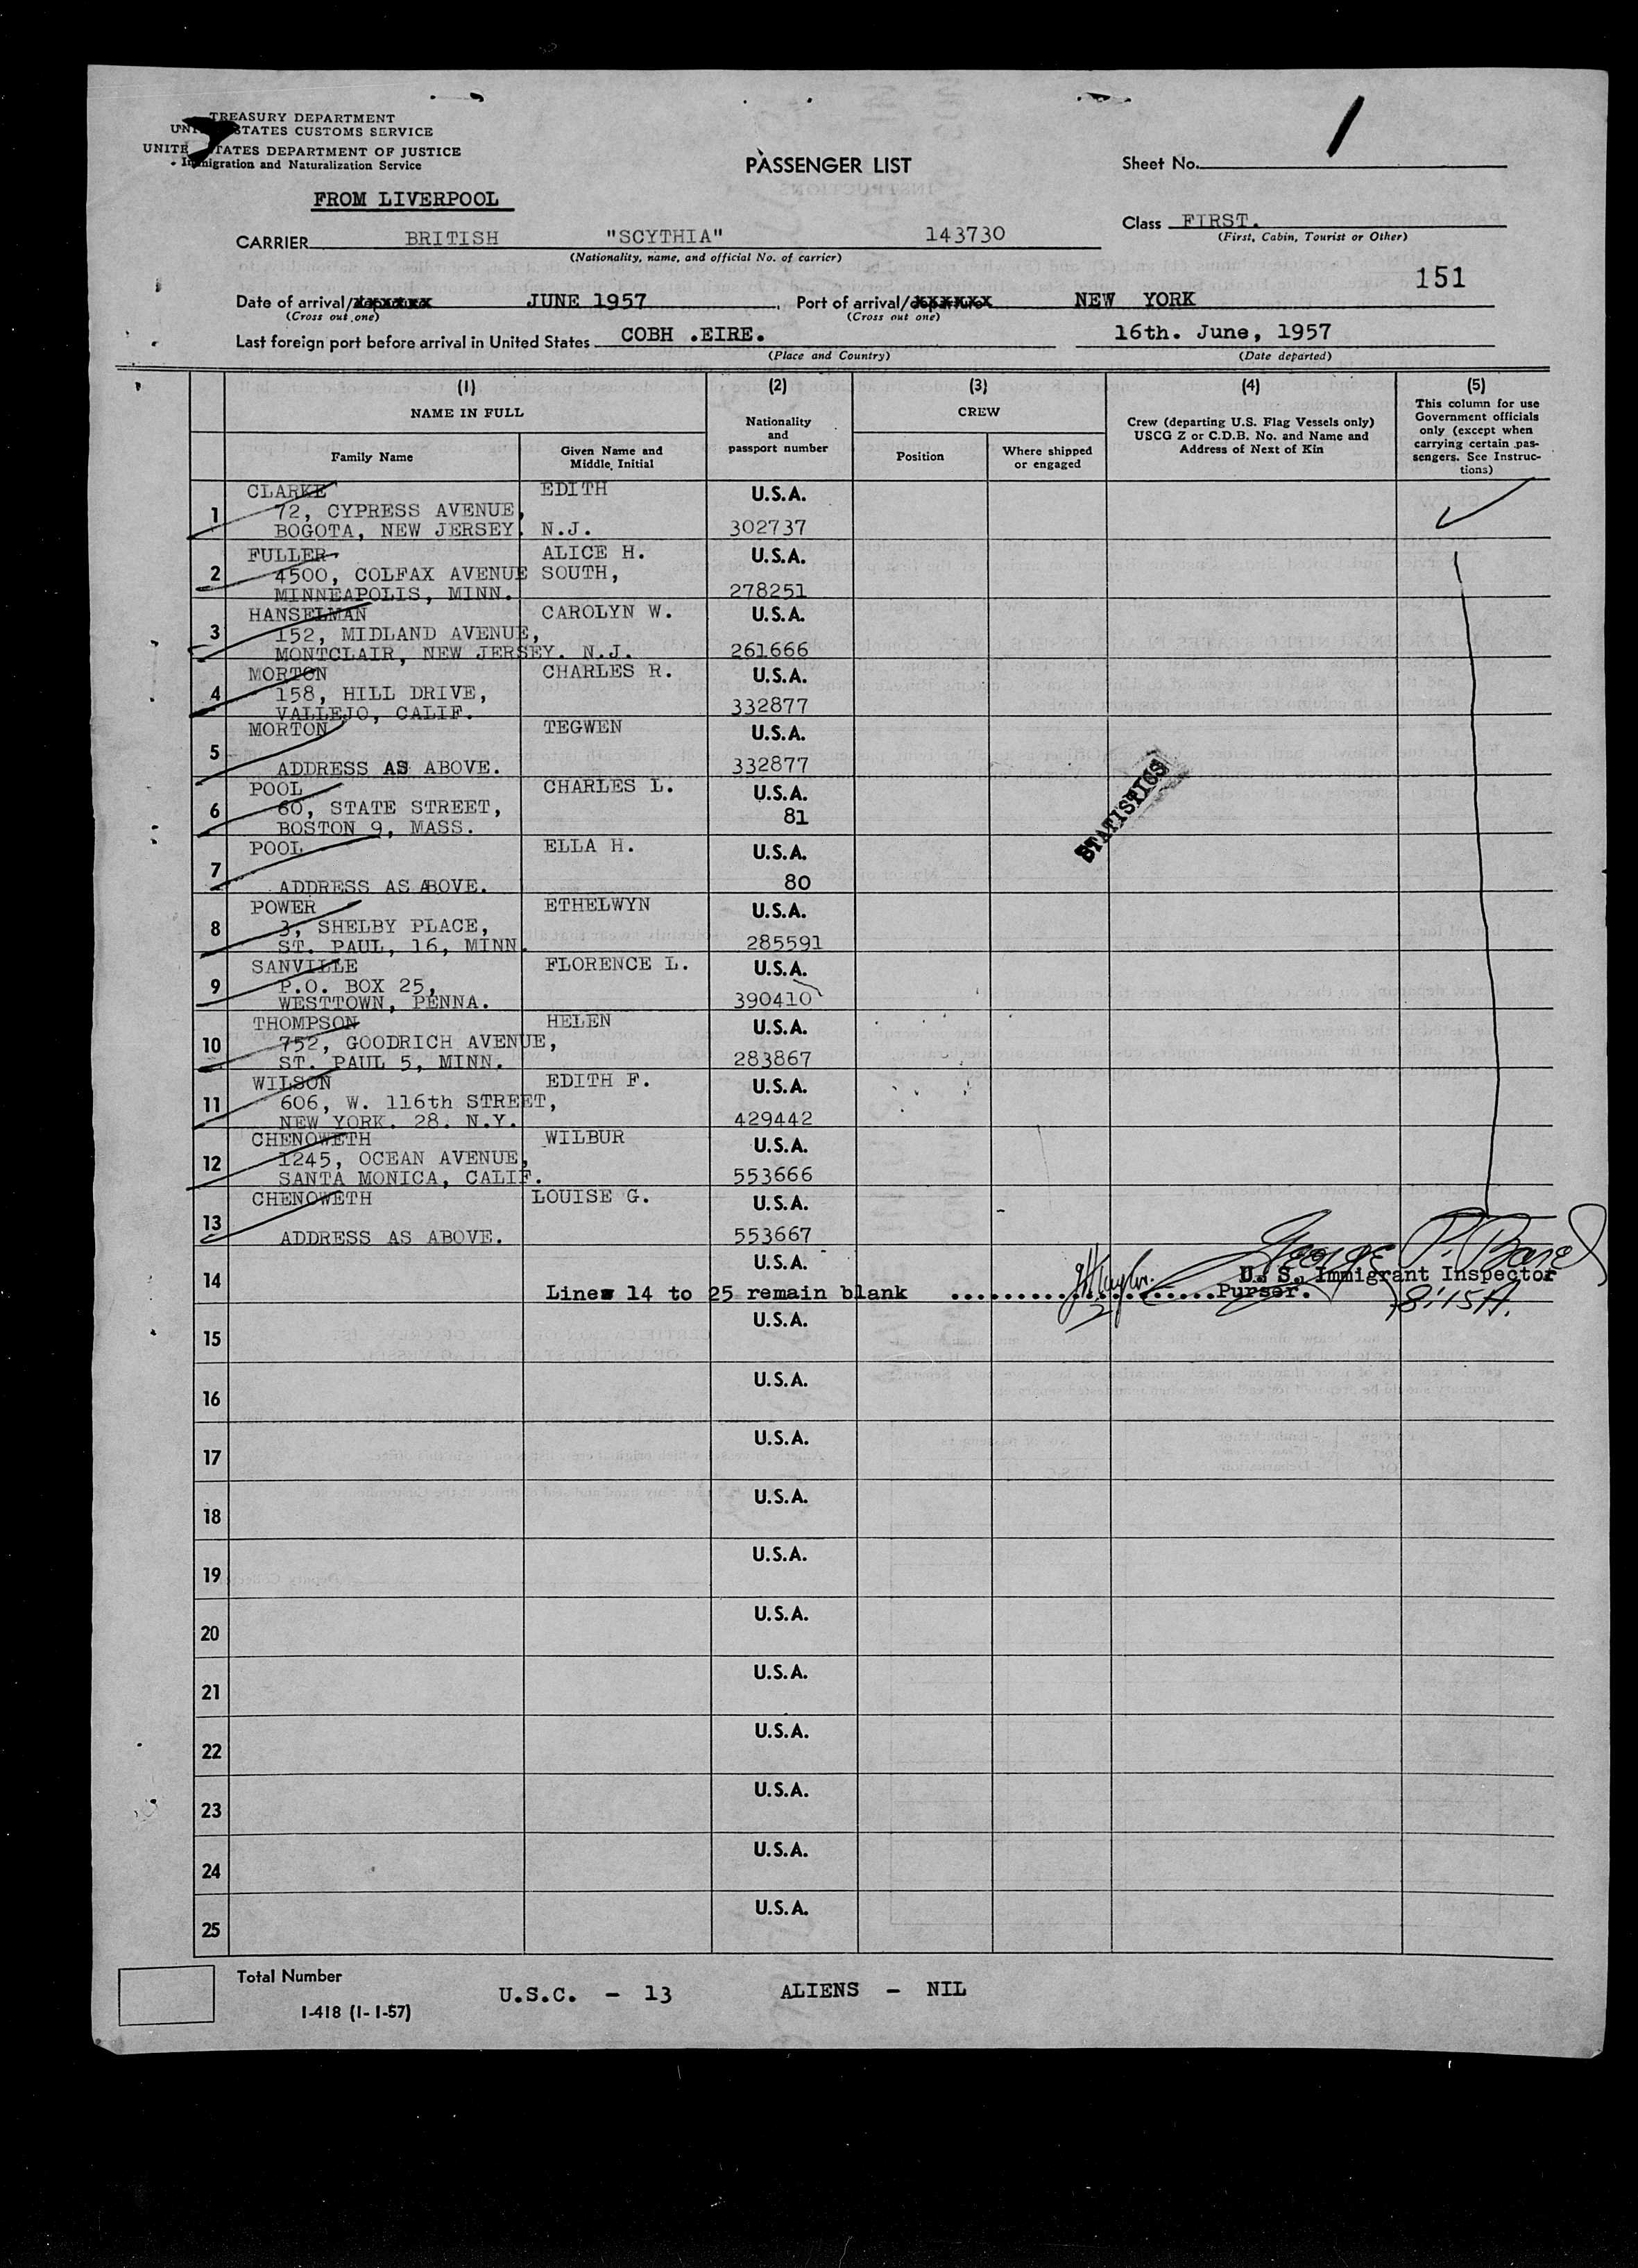 TREASURY DEPARTMENT
STATES CUSTOMS SERVICE
UNITE STATES DEPARTMENT OF JUSTICE
Immigration and Naturalization Service
PASSENGER LIST
Sheet No. 1
FROM LIVERPOOL
Class FIRST.
(First, Cabin, Tourist or Other)
CARRIER BRITISH "SCYTHIA" 143730
(Nationality, name, and official No. of carrier)
151
Date of arrival/departure JUNE 1957 Port of arrival/departure NEW YORK
(Cross out one) (Cross out one)
Last foreign port before arrival in United States COBH .EIRE. 16th. June, 1957
(Place and Country) (Date departed)
(1) (2) (3) (4) (5)
NAME IN FULL
Family Name
Given Name and
Middle Initial
Nationality
and
passport number
CREW
Position
Where shipped
or engaged
Crew (departing U.S. Flag Vessels only)
USCG Z or C.D.B. No. and Name and
Address of Next of Kin
This column for use
Government officials
only (except when
carrying certain pas-
sengers. See Instruc-
tions)
1 CLARKE EDITH U.S.A.
72, CYPRESS AVENUE,
BOGOTA, NEW JERSEY. N.J. 302737
2 FULLER ALICE H. U.S.A.
4500, COLFAX AVENUE SOUTH,
MINNEAPOLIS, MINN. 278251
3 HANSELMAN CAROLYN W. U.S.A.
152, MIDLAND AVENUE,
MONTCLAIR, NEW JERSEY. N.J. 261666
4 MORTON CHARLES R. U.S.A.
158, HILL DRIVE,
VALLEJO, CALIF. 332877
5 MORTON TEGWEN U.S.A.
ADDRESS AS ABOVE. 332877
6 POOL CHARLES L. U.S.A.
60, STATE STREET, 81
BOSTON 9, MASS.
7 POOL ELLA H. U.S.A.
ADDRESS AS ABOVE. 80
STATISTICS
8 POWER ETHELWYN U.S.A.
3, SHELBY PLACE,
ST. PAUL, 16, MINN. 285591
9 SANVILLE FLORENCE L. U.S.A.
P.O. BOX 25,
WESTTOWN, PENNA. 390410
10 THOMPSON HELEN U.S.A.
752, GOODRICH AVENUE,
ST. PAUL 5, MINN. 283867
11 WILSON EDITH F. U.S.A.
606, W. 116th STREET,
NEW YORK. 28. N.Y. 429442
12 CHENOWETH WILBUR U.S.A.
1245, OCEAN AVENUE,
SANTA MONICA, CALIF. 553666
13 CHENOWETH LOUISE G. U.S.A.
ADDRESS AS ABOVE. 553667
14 U.S.A.
U. S. Immigrant Inspector
Lines 14 to 25 remain blank ........................Purser.
8:15A.
15 U.S.A.
16 U.S.A.
17 U.S.A.
18 U.S.A.
19 U.S.A.
20 U.S.A.
21 U.S.A.
22 U.S.A.
23 U.S.A.
24 U.S.A.
25 U.S.A.
Total Number
U.S.C. - 13 ALIENS - NIL
I-418 (1-1-57)